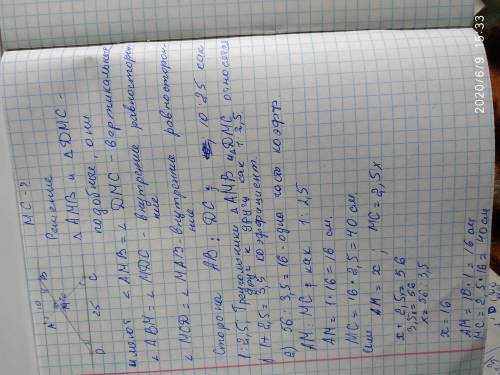 МС-?
A 10 B
M
D 25 C
Решение
△AMB и △DMC -
подобные, они
имеют ∠AMB = ∠DMC - вертикальные
∠ABM = ∠MDC - внутрение равносторон-
ние
∠MCD = ∠MAB - внутрение равносторон-
ние
Сторона AB : DC ; 10:25 как
1:2,5. Треугольники △AMB и △DMC относятся
друг к другу как 1:2,5
1) 1+2,5=3,5 коэффициент
2) 56:3,5=16 - одна часть коэфф.
AM:MC; как 1:2,5
AM = 1·16 = 16 см
MC = 16·2,5 = 40 см
Или AM = x ; MC = 2,5x
x + 2,5x = 56
3,5x = 56
x = 56:3,5
x = 16
AM = 16·1 = 16 см
MC = 2,5·16 = 40 см
2020/6/9 16:33